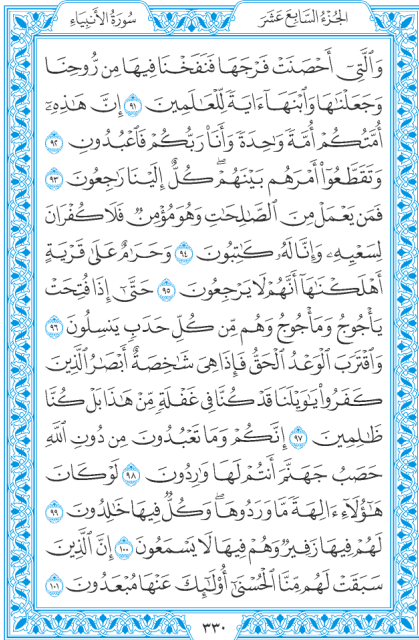 الجُزْءُ السَّابِعَ عَشَرَ سُورَةُ الأَنْبِيَاءِ
وَٱلَّتِىٓ أَحْصَنَتْ فَرْجَهَا فَنَفَخْنَا فِيهَا مِن رُّوحِنَا
وَجَعَلْنَٰهَا وَٱبْنَهَآ ءَايَةً لِّلْعَٰلَمِينَ ٩١ إِنَّ هَٰذِهِۦٓ
أُمَّتُكُمْ أُمَّةً وَٰحِدَةً وَأَنَا۠ رَبُّكُمْ فَٱعْبُدُونِ ٩٢
وَتَقَطَّعُوٓا۟ أَمْرَهُم بَيْنَهُمْ ۖ كُلٌّ إِلَيْنَا رَٰجِعُونَ ٩٣
فَمَن يَعْمَلْ مِنَ ٱلصَّٰلِحَٰتِ وَهُوَ مُؤْمِنٌ فَلَا كُفْرَانَ
لِسَعْيِهِۦ وَإِنَّا لَهُۥ كَٰتِبُونَ ٩٤ وَحَرَٰمٌ عَلَىٰ قَرْيَةٍ
أَهْلَكْنَٰهَآ أَنَّهُمْ لَا يَرْجِعُونَ ٩٥ حَتَّىٰٓ إِذَا فُتِحَتْ
يَأْجُوجُ وَمَأْجُوجُ وَهُم مِّن كُلِّ حَدَبٍ يَنسِلُونَ ٩٦
وَٱقْتَرَبَ ٱلْوَعْدُ ٱلْحَقُّ فَإِذَا هِىَ شَٰخِصَةٌ أَبْصَٰرُ ٱلَّذِينَ
كَفَرُوا۟ يَٰوَيْلَنَا قَدْ كُنَّا فِى غَفْلَةٍ مِّنْ هَٰذَا بَلْ كُنَّا
ظَٰلِمِينَ ٩٧ إِنَّكُمْ وَمَا تَعْبُدُونَ مِن دُونِ ٱللَّهِ
حَصَبُ جَهَنَّمَ أَنتُمْ لَهَا وَٰرِدُونَ ٩٨ لَوْ كَانَ
هَٰٓؤُلَآءِ ءَالِهَةً مَّا وَرَدُوهَا ۖ وَكُلٌّ فِيهَا خَٰلِدُونَ ٩٩
لَهُمْ فِيهَا زَفِيرٌ وَهُمْ فِيهَا لَا يَسْمَعُونَ ١٠٠ إِنَّ ٱلَّذِينَ
سَبَقَتْ لَهُم مِّنَّا ٱلْحُسْنَىٰٓ أُو۟لَٰٓئِكَ عَنْهَا مُبْعَدُونَ ١٠١
٣٣٠